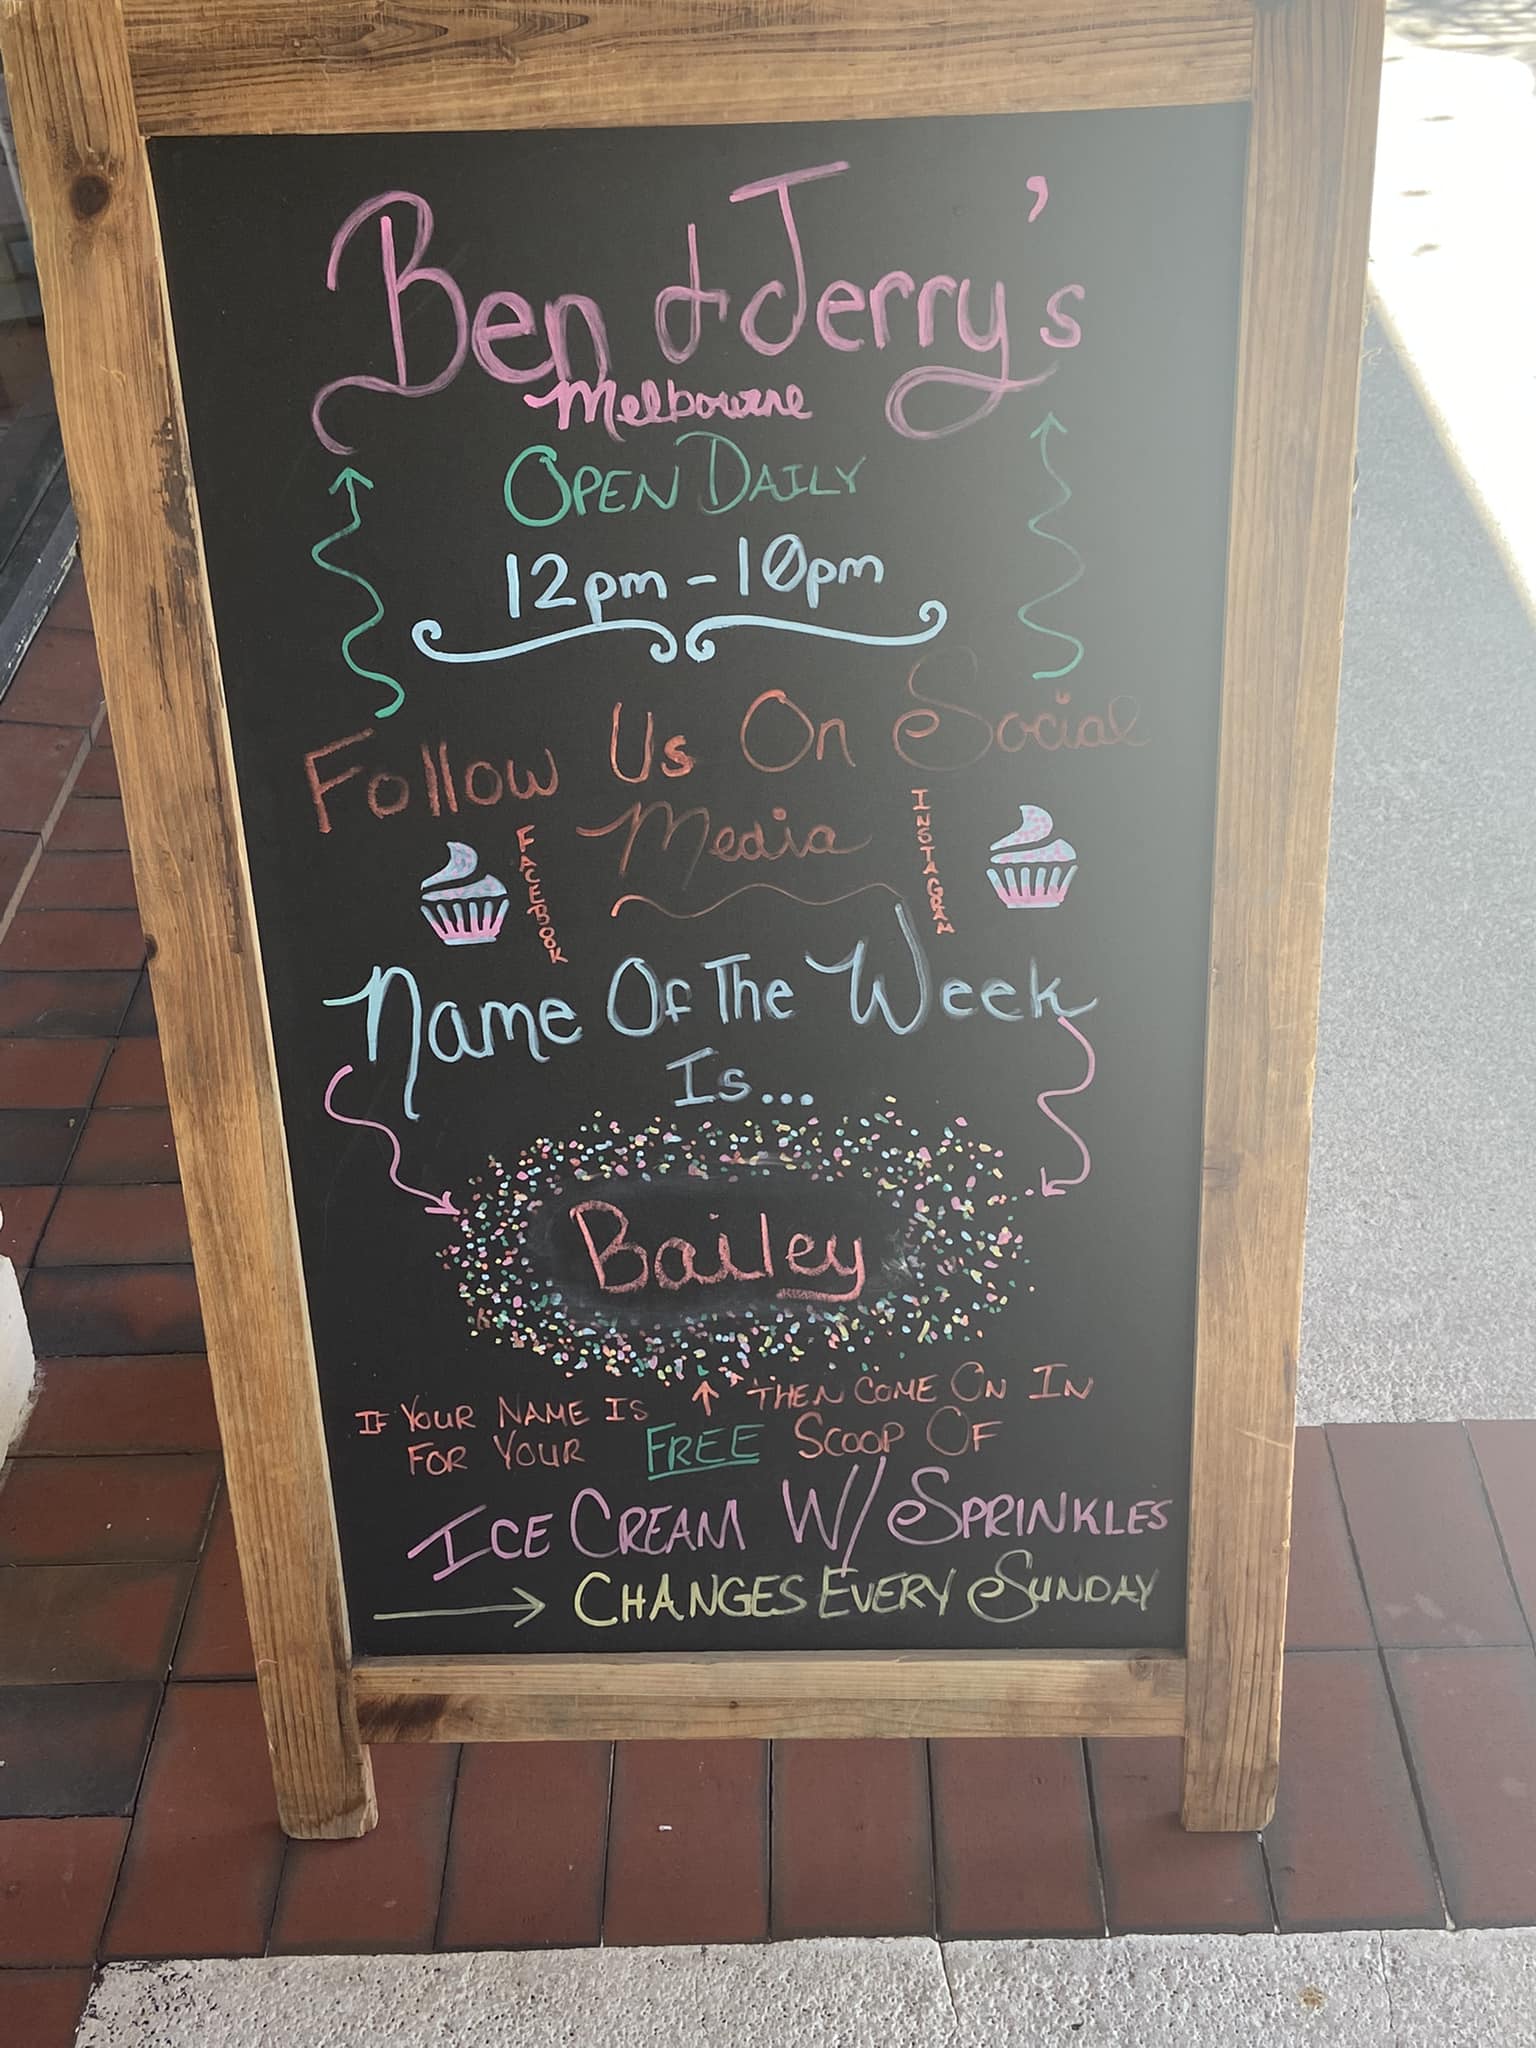 Ben & Jerry's
Melbourne
OPEN DAILY
12pm - 10pm
Follow Us On Social
Media
FACEBOOK
INSTAGRAM
Name Of The Week
Is...
Bailey
IF YOUR NAME IS ↑ THEN COME ON IN
FOR YOUR FREE SCOOP OF
ICE CREAM W/ SPRINKLES
→ CHANGES EVERY SUNDAY